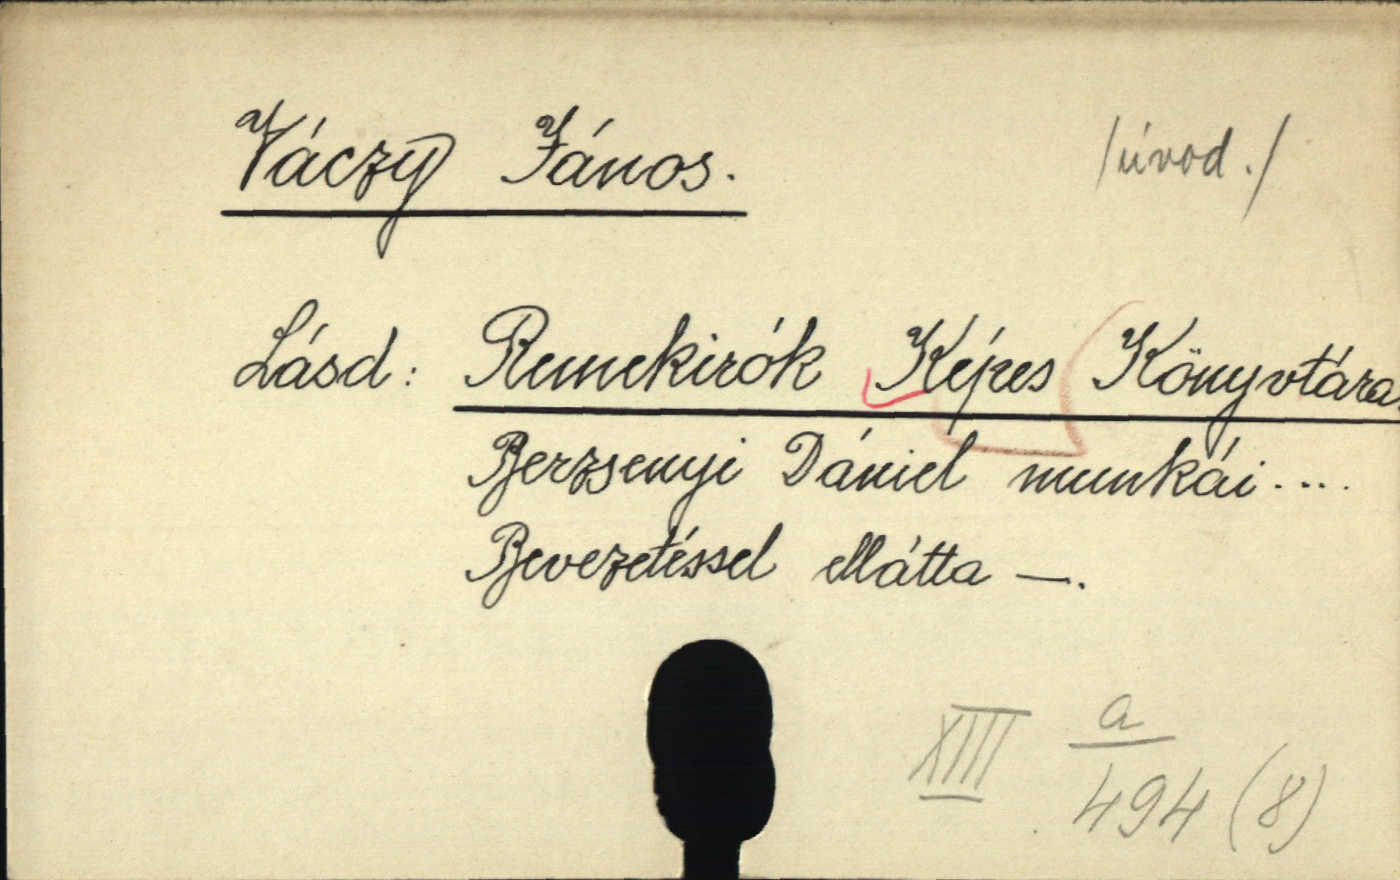 Váczy János.
/úvod./
Lásd: Remekirók Képes Könyvtára
Berzsenyi Dániel munkái....
Bevezetéssel ellátta —.
XIII a
494 (8)